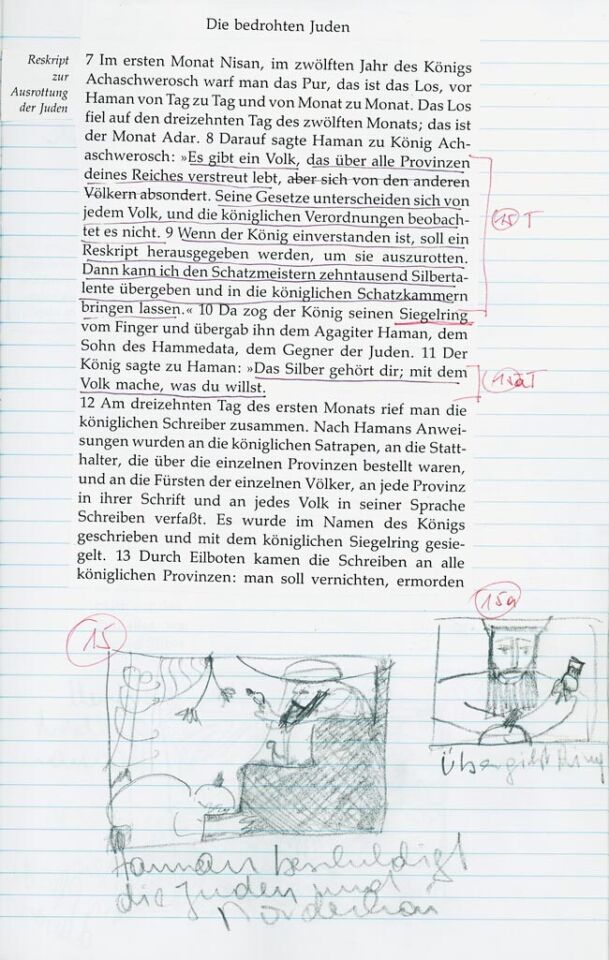 Die bedrohten Juden
Reskript
zur
Ausrottung
der Juden
7 Im ersten Monat Nisan, im zwölften Jahr des Königs
Achaschwerosch warf man das Pur, das ist das Los, vor
Haman von Tag zu Tag und von Monat zu Monat. Das Los
fiel auf den dreizehnten Tag des zwölften Monats; das ist
der Monat Adar. 8 Darauf sagte Haman zu König Ach-
aschwerosch: »Es gibt ein Volk, das über alle Provinzen
deines Reiches verstreut lebt, aber sich von den anderen
Völkern absondert. Seine Gesetze unterscheiden sich von
jedem Volk, und die königlichen Verordnungen beobach-
tet es nicht. 9 Wenn der König einverstanden ist, soll ein
Reskript herausgegeben werden, um sie auszurotten.
Dann kann ich den Schatzmeistern zehntausend Silberta-
lente übergeben und in die königlichen Schatzkammern
bringen lassen.« 10 Da zog der König seinen Siegelring
vom Finger und übergab ihn dem Agagiter Haman, dem
Sohn des Hammedata, dem Gegner der Juden. 11 Der
König sagte zu Haman: »Das Silber gehört dir; mit dem
Volk mache, was du willst.
12 Am dreizehnten Tag des ersten Monats rief man die
königlichen Schreiber zusammen. Nach Hamans Anwei-
sungen wurden an die königlichen Satrapen, an die Statt-
halter, die über die einzelnen Provinzen bestellt waren,
und an die Fürsten der einzelnen Völker, an jede Provinz
in ihrer Schrift und an jedes Volk in seiner Sprache
Schreiben verfaßt. Es wurde im Namen des Königs
geschrieben und mit dem königlichen Siegelring gesie-
gelt. 13 Durch Eilboten kamen die Schreiben an alle
königlichen Provinzen: man soll vernichten, ermorden
15 T
15a T
15
15a
Übergibt Ring
Haman beschuldigt
die Juden und
Mordechai